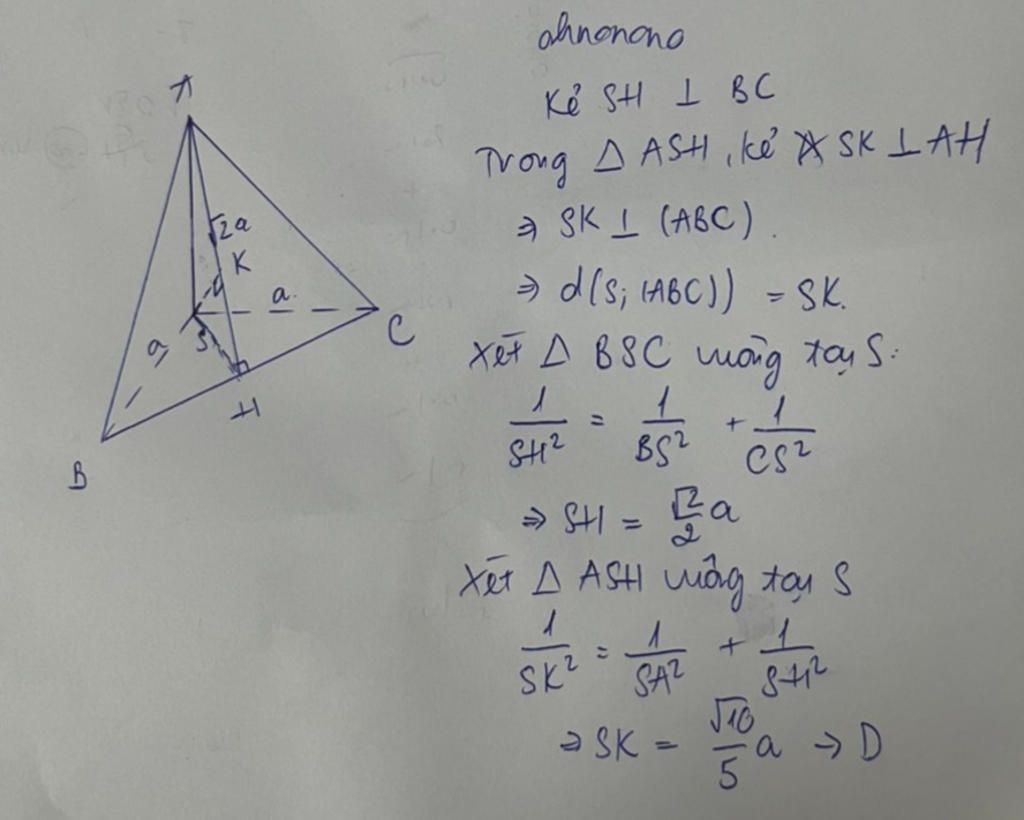 ahnonono
Kẻ SH ⊥ BC
Trong Δ ASH, kẻ SK ⊥ AH
⇒ SK ⊥ (ABC).
⇒ d(S; (ABC)) = SK.
Xét Δ BSC vuông tại S:
1/SH² = 1/BS² + 1/CS²
⇒ SH = √2/2 a
Xét Δ ASH vuông tại S
1/SK² = 1/SA² + 1/SH²
⇒ SK = √10/5 a → D
A
√2a
K
a
S
C
a
H
B